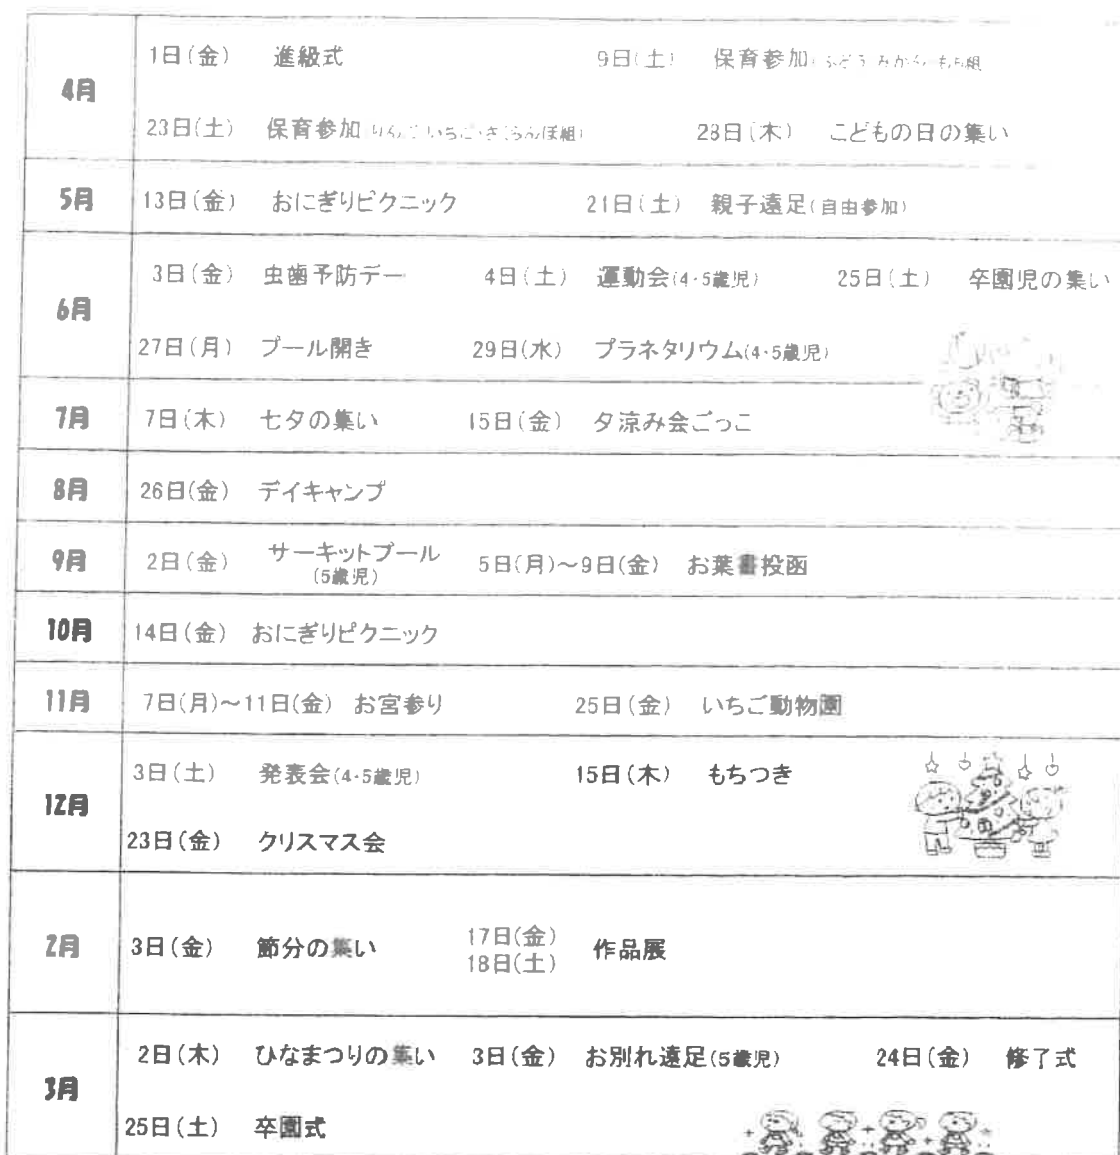 4月
1日(金) 進級式 9日(土) 保育参加(ぶどう・みかん・もも組)
23日(土) 保育参加(りんご・いちご・さくらんぼ組) 28日(木) こどもの日の集い
5月
13日(金) おにぎりピクニック 21日(土) 親子遠足(自由参加)
6月
3日(金) 虫歯予防デー 4日(土) 運動会(4・5歳児) 25日(土) 卒園児の集い
27日(月) プール開き 29日(水) プラネタリウム(4・5歳児)
7月
7日(木) 七夕の集い 15日(金) 夕涼み会ごっこ
8月
26日(金) デイキャンプ
9月
2日(金) サーキットプール
(5歳児)
5日(月)～9日(金) お葉書投函
10月
14日(金) おにぎりピクニック
11月
7日(月)～11日(金) お宮参り 25日(金) いちご動物園
12月
3日(土) 発表会(4・5歳児) 15日(木) もちつき
23日(金) クリスマス会
2月
3日(金) 節分の集い
17日(金)
18日(土)
作品展
3月
2日(木) ひなまつりの集い 3日(金) お別れ遠足(5歳児) 24日(金) 修了式
25日(土) 卒園式